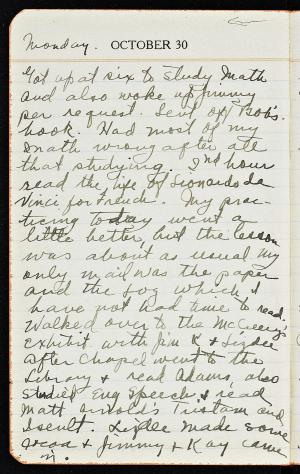 Monday. OCTOBER 30
Got up at six to study Math
and also woke up Jimmy
per request. Sent off Bob's
book. Had most of my
math wrong after all
that studying. 2nd hour
read the life of Lionardo de
Vinci for Freud. My prac-
ticing today went a
little better, but the lesson
was about as usual. My
only mail was the paper
and the Log which I
have not had time to read.
Walked over to the McCreery
exhibit with Jim K & Lizdee
After Chapel went to the
Library & read Adams, also
studied Eng Speech & read
Matt Arnold's Tristam and
Iseult. Lizdee made some
cocoa & Jimmy & Kay came
in.